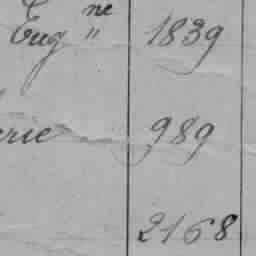 Eug ne " 1839
erie 989
2168